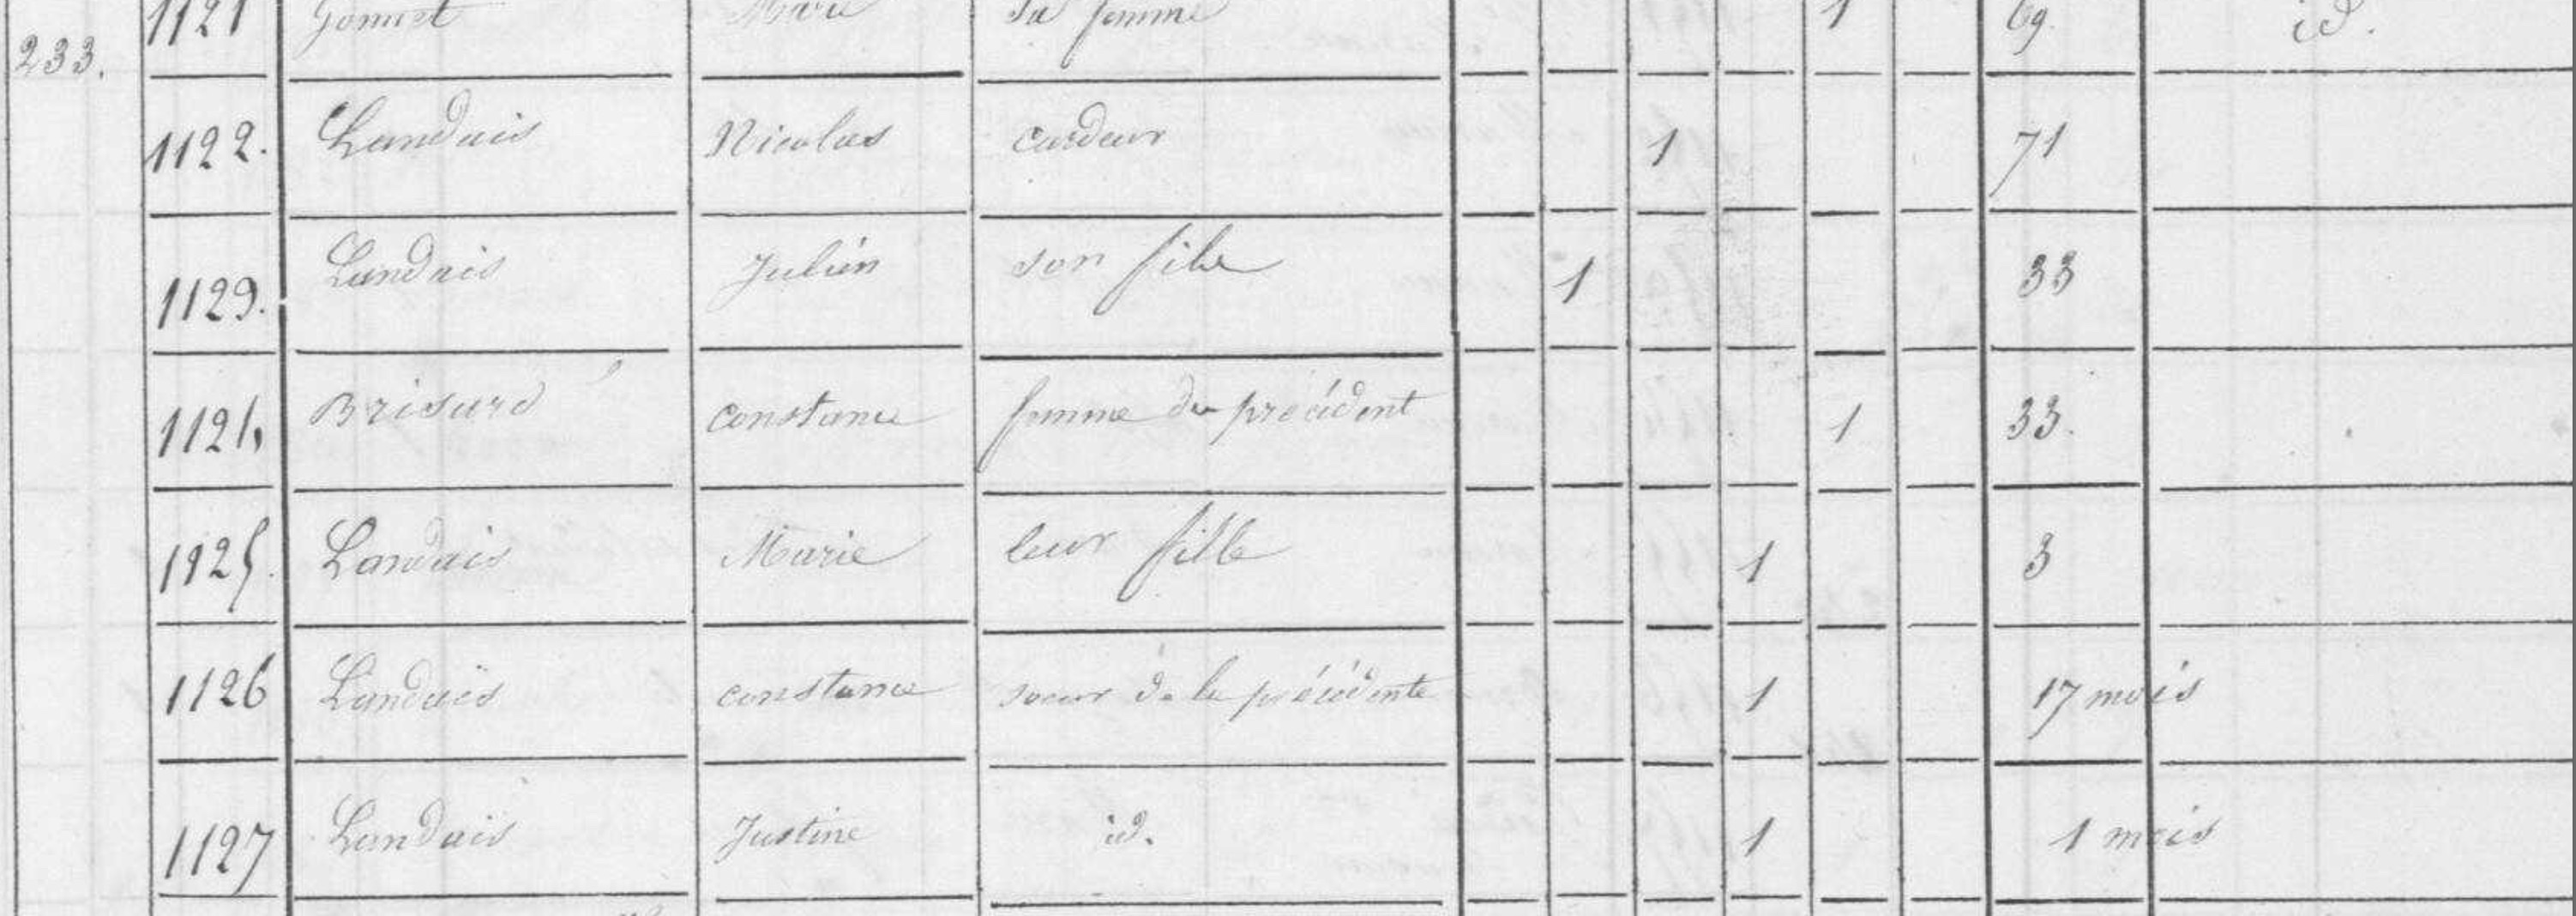 1121 Gonnet Marie sa femme 1 69. id.
233.
1122. Landais Nicolas cardeur 1 71
1123. Landais Julien son fils 1 33
1124. Brisard constance femme du précédent 1 33.
1125. Landais Marie leur fille 1 3
1126 Landais constance soeur de la précédente 1 17 mois
1127 Landais Justine id. 1 1 mois